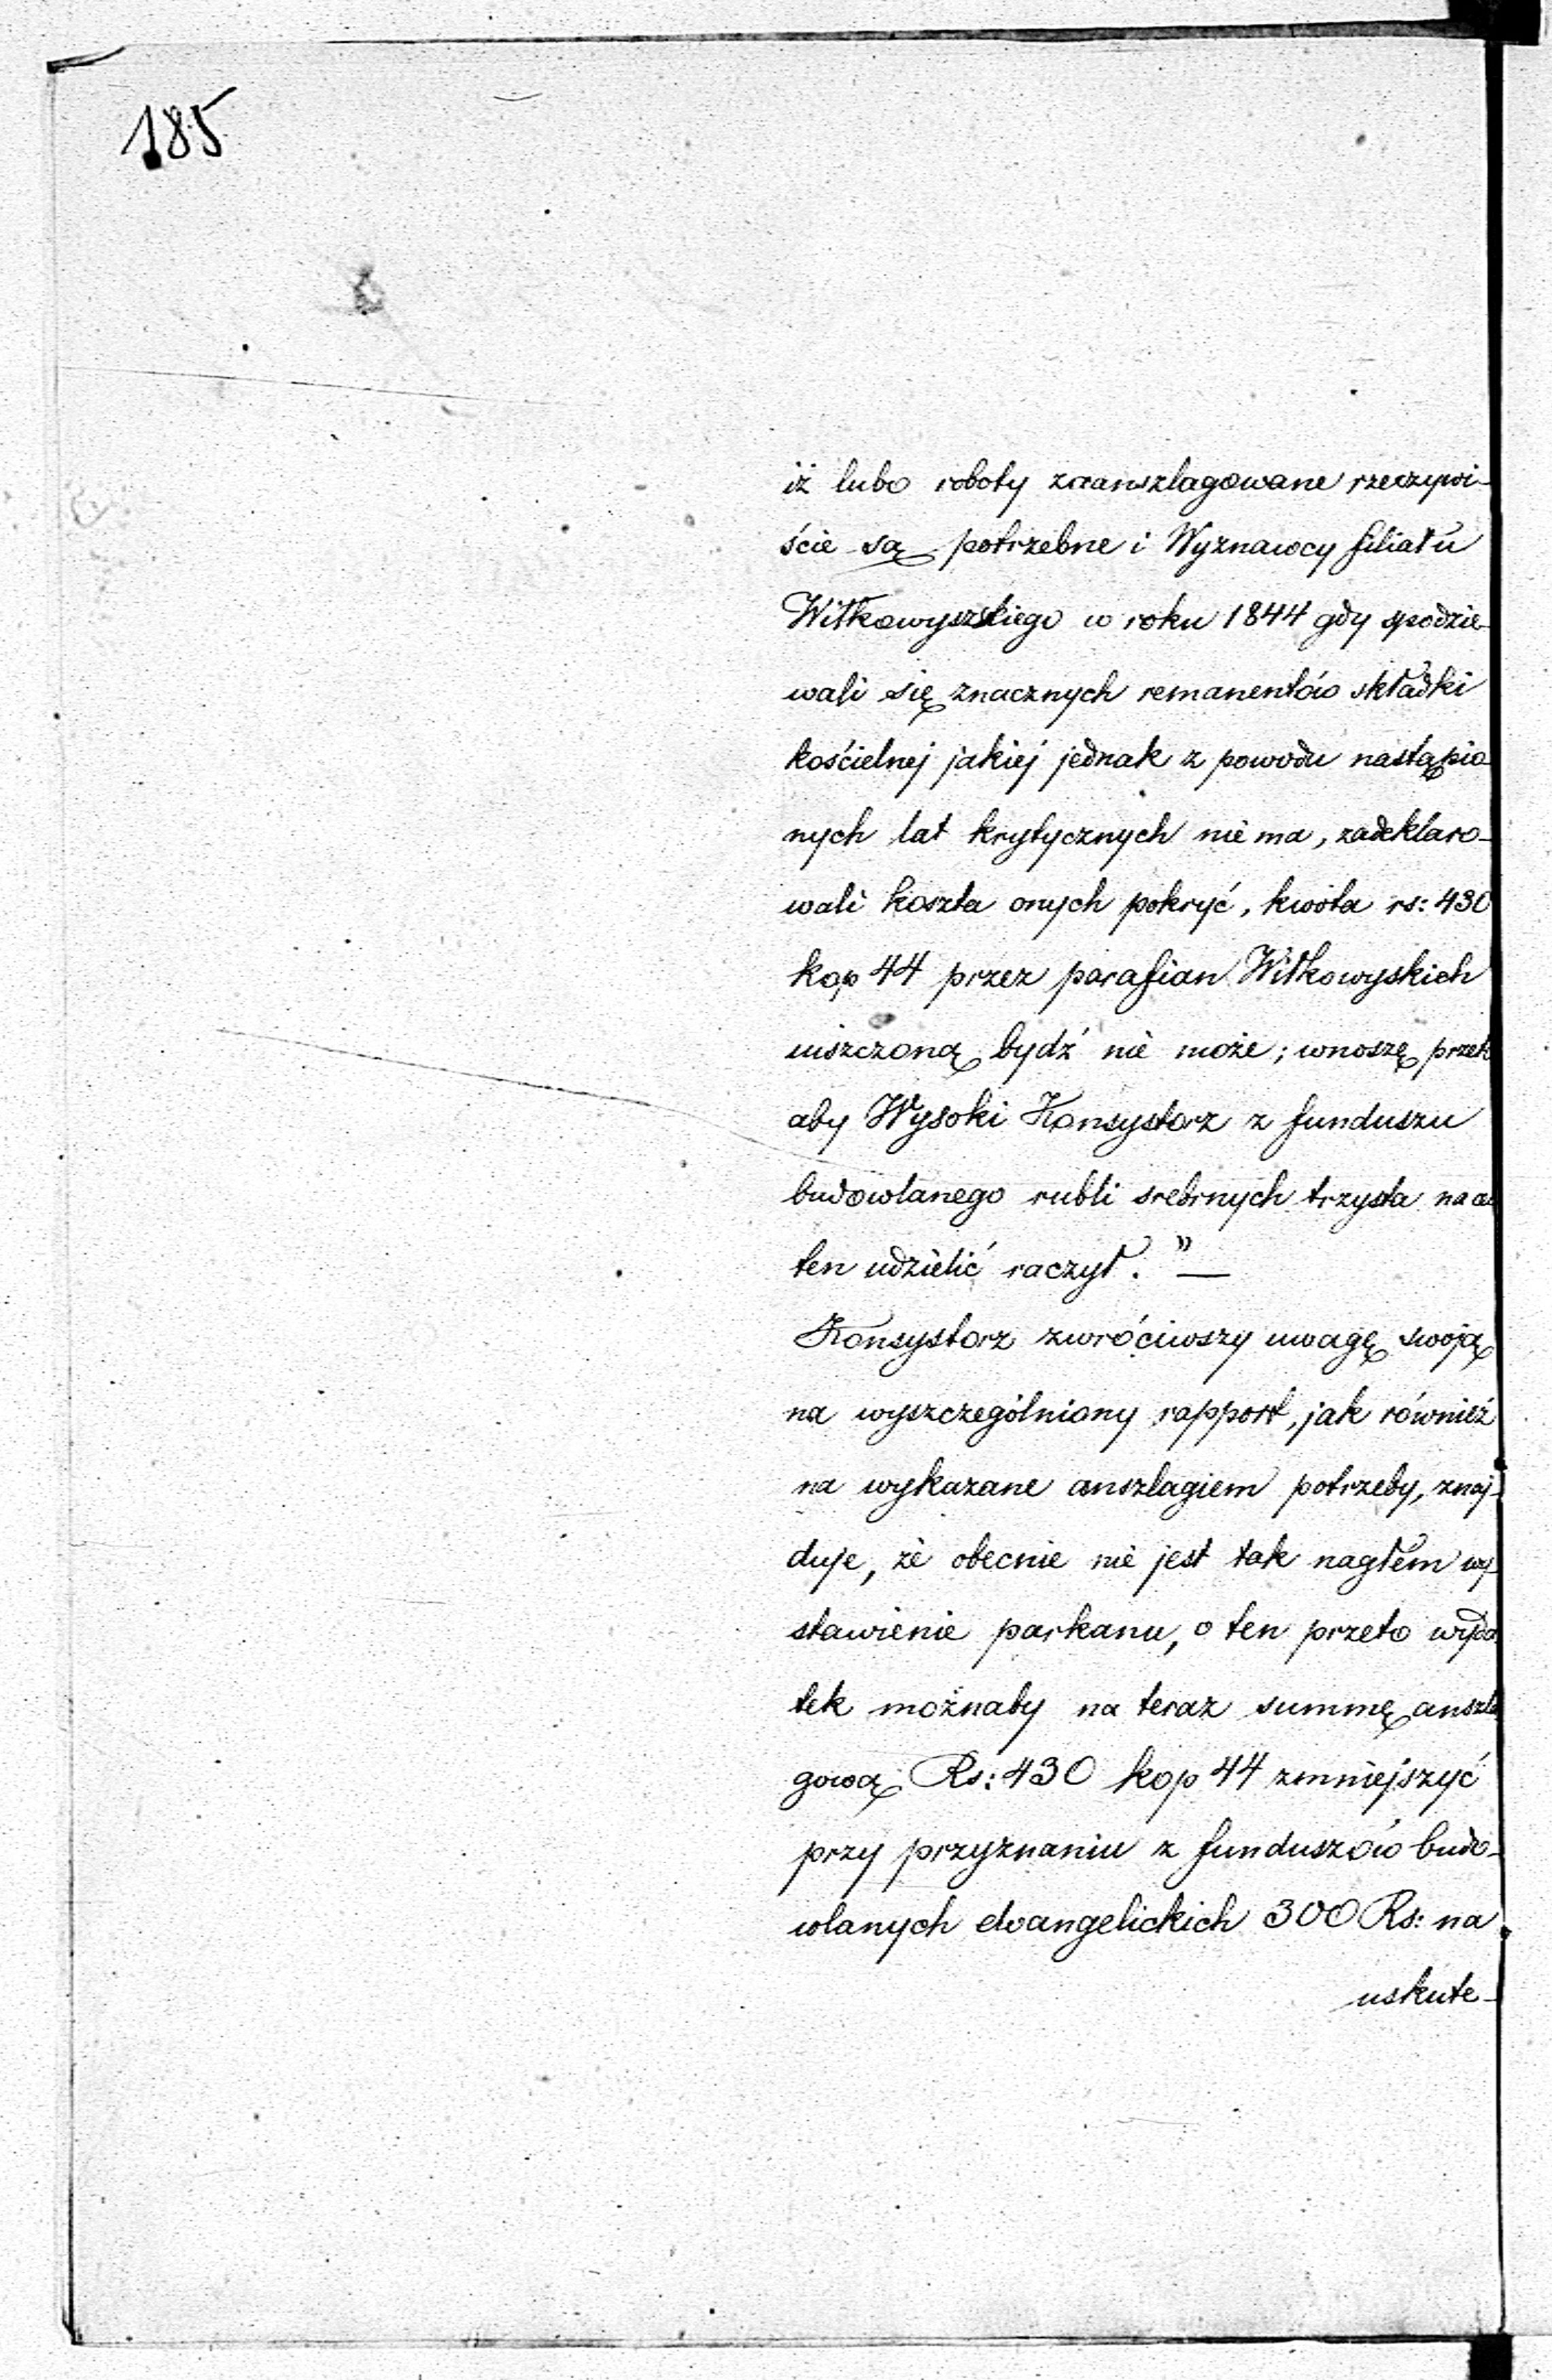 185
iż lubo roboty zaanszlagowane rzeczywi-
ście są potrzebne i Wyznawcy filiału
Wiłkowyszskiego w roku 1844 gdy spodzie-
wali się znacznych remanentów składki
kościelnej jakiej jednak z powodu nastąpio
nych lat krytycznych nie ma, zadeklaro-
wali koszta onych pokryć, kwota rs: 430
kop 44 przez parafian Wiłkowyskich
uiszczoną bydź nie może; wnoszę przeto
aby Wysoki Konsystorz z funduszu
budowlanego rubli srebrnych trzysta na
ten udzielić raczył." —
Konsystorz zwróciwszy uwagę swoją
na wyszczególniony rapport, jak również
na wykazane anszlagiem potrzeby, znaj-
duje, że obecnie nie jest tak nagłem wy-
stawienie parkanu, o ten przeto wyda
tek możnaby na teraz summę anszla
gową Rs: 430 kop 44 zmniejszyć
przy przyznaniu z funduszów budo-
wlanych ewangelickich 300 Rs: na
uskute-